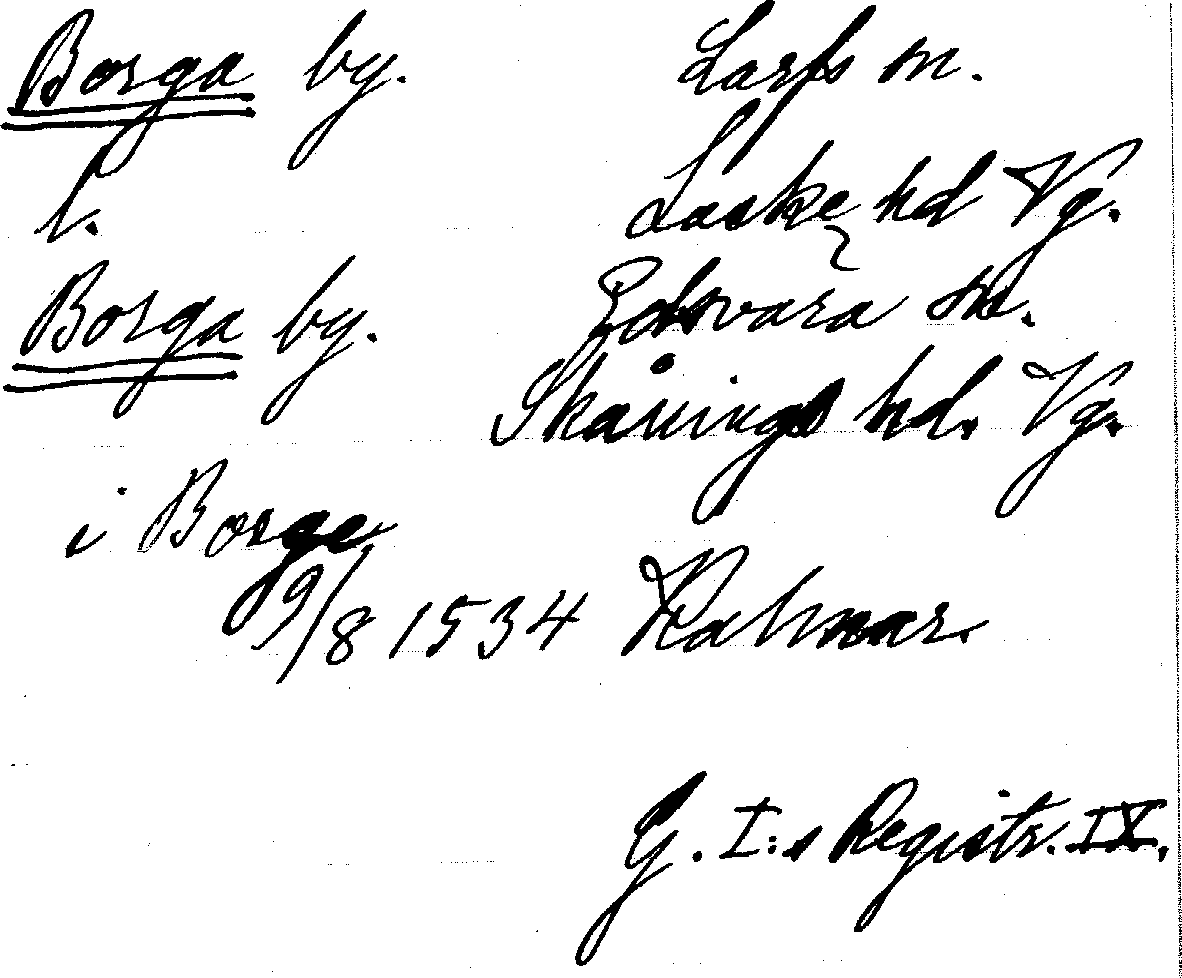 Borga by. Larfs sn.
l. Laske hd Vg.
Borga by. Edsvära sn.
Skånings hd. Vg.
i Borge
9/8 1534 Kalmar.
G. I:s Registr. IX.